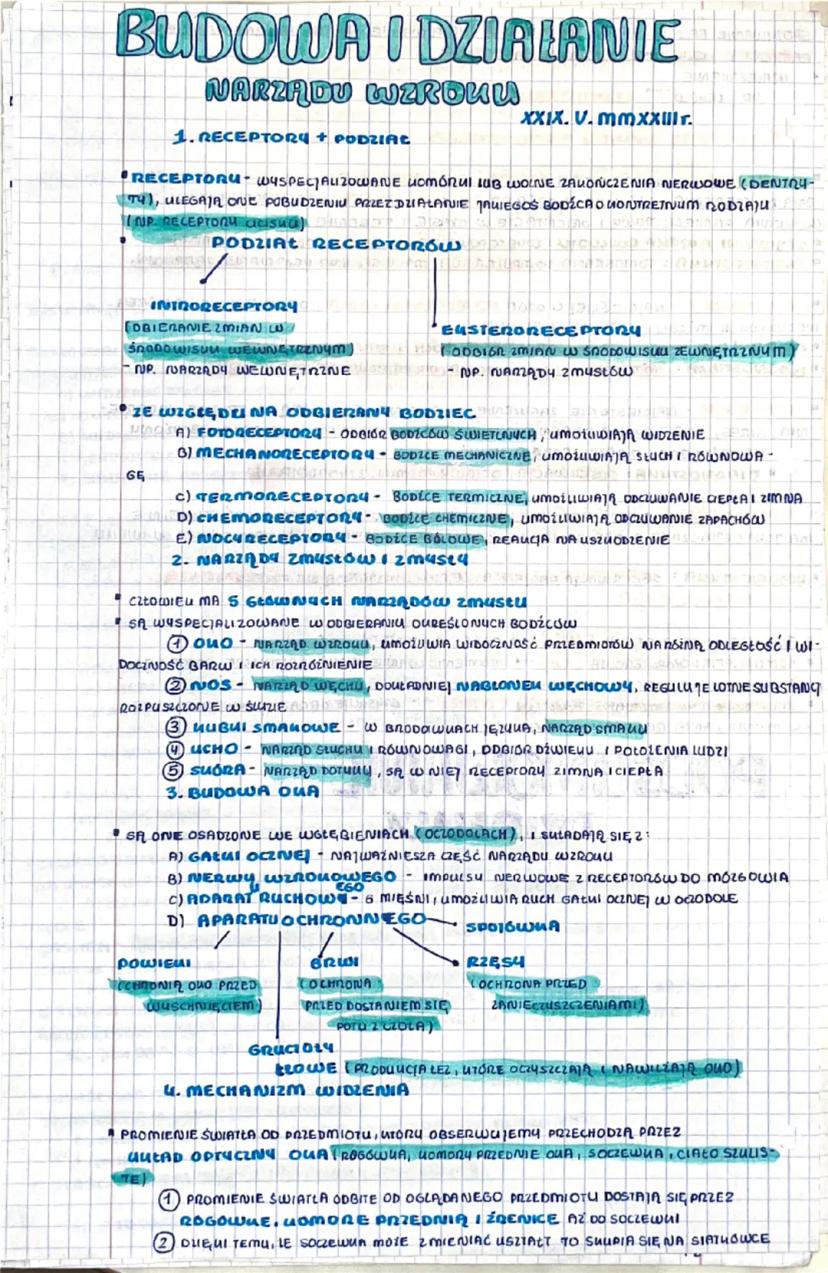 BUDOWA I DZIAŁANIE
NARZĄDU WZROKU
XXIX. V. MMXXIII r.
1. RECEPTORY + PODZIAŁ
• RECEPTORY - WYSPECJALIZOWANE KOMÓRKI LUB WOLNE ZAKOŃCZENIA NERWOWE (DENTRY-
TY), ULEGAJĄ ONE POBUDZENIU PRZEZ DZIAŁANIE JAKIEGOŚ BODŹCA O KONTRETNYM RODZAJU
(NP. RECEPTORY UCISKU)
• PODZIAŁ RECEPTORÓW
INTRORECEPTORY
(OBIERANIE ZMIAN W
ŚRODOWISKU WEWNĘTRZNYM)
- NP. NARZĄDY WEWNĘTRZNE
EKSTERORECEPTORY
(ODBIÓR ZMIAN W ŚRODOWISKU ZEWNĘTRZNYM)
- NP. NARZĄDY ZMYSŁÓW
• ZE WZGLĘDU NA ODBIERANY BODZIEC
A) FOTORECEPTORY - ODBIÓR BODŹCÓW ŚWIETLNYCH, UMOŻLIWIAJĄ WIDZENIE
B) MECHANORECEPTORY - BODŹCE MECHANICZNE, UMOŻLIWIAJĄ SŁUCH I RÓWNOWA-
GĘ
C) TERMORECEPTORY - BODŹCE TERMICZNE, UMOŻLIWIAJĄ ODCZUWANIE CIEPŁA I ZIMNA
D) CHEMORECEPTORY - BODŹCE CHEMICZNE, UMOŻLIWIAJĄ ODCZUWANIE ZAPACHÓW
E) NOCYRECEPTORY - BODŹCE BÓLOWE, REAKCJA NA USZKODZENIE
2. NARZĄDY ZMYSŁÓW I ZMYSŁY
• CZŁOWIEK MA 5 GŁÓWNYCH NARZĄDÓW ZMYSŁU
• SĄ WYSPECJALIZOWANE W ODBIERANIU OKREŚLONYCH BODŹCÓW
① OKO - NARZĄD WZROKU, UMOŻLIWIA WIDOCZNOŚĆ PRZEDMIOTÓW NA RÓŻNĄ ODLEGŁOŚĆ I WI-
DOCZNOŚĆ BARW I ICH ROZRÓŻNIENIE
② NOS - NARZĄD WĘCHU, DOKŁADNIEJ NABŁONEK WĘCHOWY, REGULUJE LOTNE SUBSTANCJ
ROZPUSZCZONE W ŚLUZIE
③ KUBKI SMAKOWE - W BRODAWKACH JĘZYKA, NARZĄD SMAKU
④ UCHO - NARZĄD SŁUCHU I RÓWNOWAGI, ODBIÓR DŹWIĘKU I POŁOŻENIA LUDZI
⑤ SKÓRA - NARZĄD DOTYKU, SĄ W NIEJ RECEPTORY ZIMNA I CIEPŁA
3. BUDOWA OKA
• SĄ ONE OSADZONE WE WGŁĘBIENIACH (OCZODOŁACH), I SKŁADAJĄ SIĘ Z:
A) GAŁKI OCZNEJ - NAJWAŻNIEJSZA CZĘŚĆ NARZĄDU WZROKU
B) NERWU WZROKOWEGO - IMPULSY NERWOWE Z RECEPTORÓW DO MÓZGOWIA
C) APARATU RUCHOWEGO - 6 MIĘŚNI, UMOŻLIWIA RUCH GAŁKI OCZNEJ W OCODOLE
D) APARATU OCHRONNEGO
SPOJÓWKA
POWIEKI
(CHRONIĄ OKO PRZED
WYSCHNIĘCIEM)
BRWI
(OCHRONA
PRZED DOSTANIEM SIĘ
POTU Z CZOŁA)
RZĘSY
(OCHRONA PRZED
ZANIECZYSZCZENIAMI)
GRUCZOŁY
ŁZOWE (PRODUKCJA ŁEZ, KTÓRE OCZYSZCZAJĄ I NAWILŻAJĄ OKO)
4. MECHANIZM WIDZENIA
• PROMIENIE ŚWIATŁA OD PRZEDMIOTU, KTÓRY OBSERWUJEMY PRZECHODZĄ PRZEZ
UKŁAD OPTYCZNY OKA (ROGÓWKA, KOMORY PRZEDNIE OKA, SOCZEWKA, CIAŁO SZKLIS-
TE)
① PROMIENIE ŚWIATŁA ODBITE OD OGLĄDANEGO PRZEDMIOTU DOSTAJĄ SIĘ PRZEZ
ROGÓWKĘ, KOMORĘ PRZEDNIĄ I ŹRENICĘ AŻ DO SOCZEWKI
② DZIĘKI TEMU, ŻE SOCZEWKA MOŻE ZMIENIAĆ KSZTAŁT TO SKUPIA SIĘ NA SIATKÓWCE